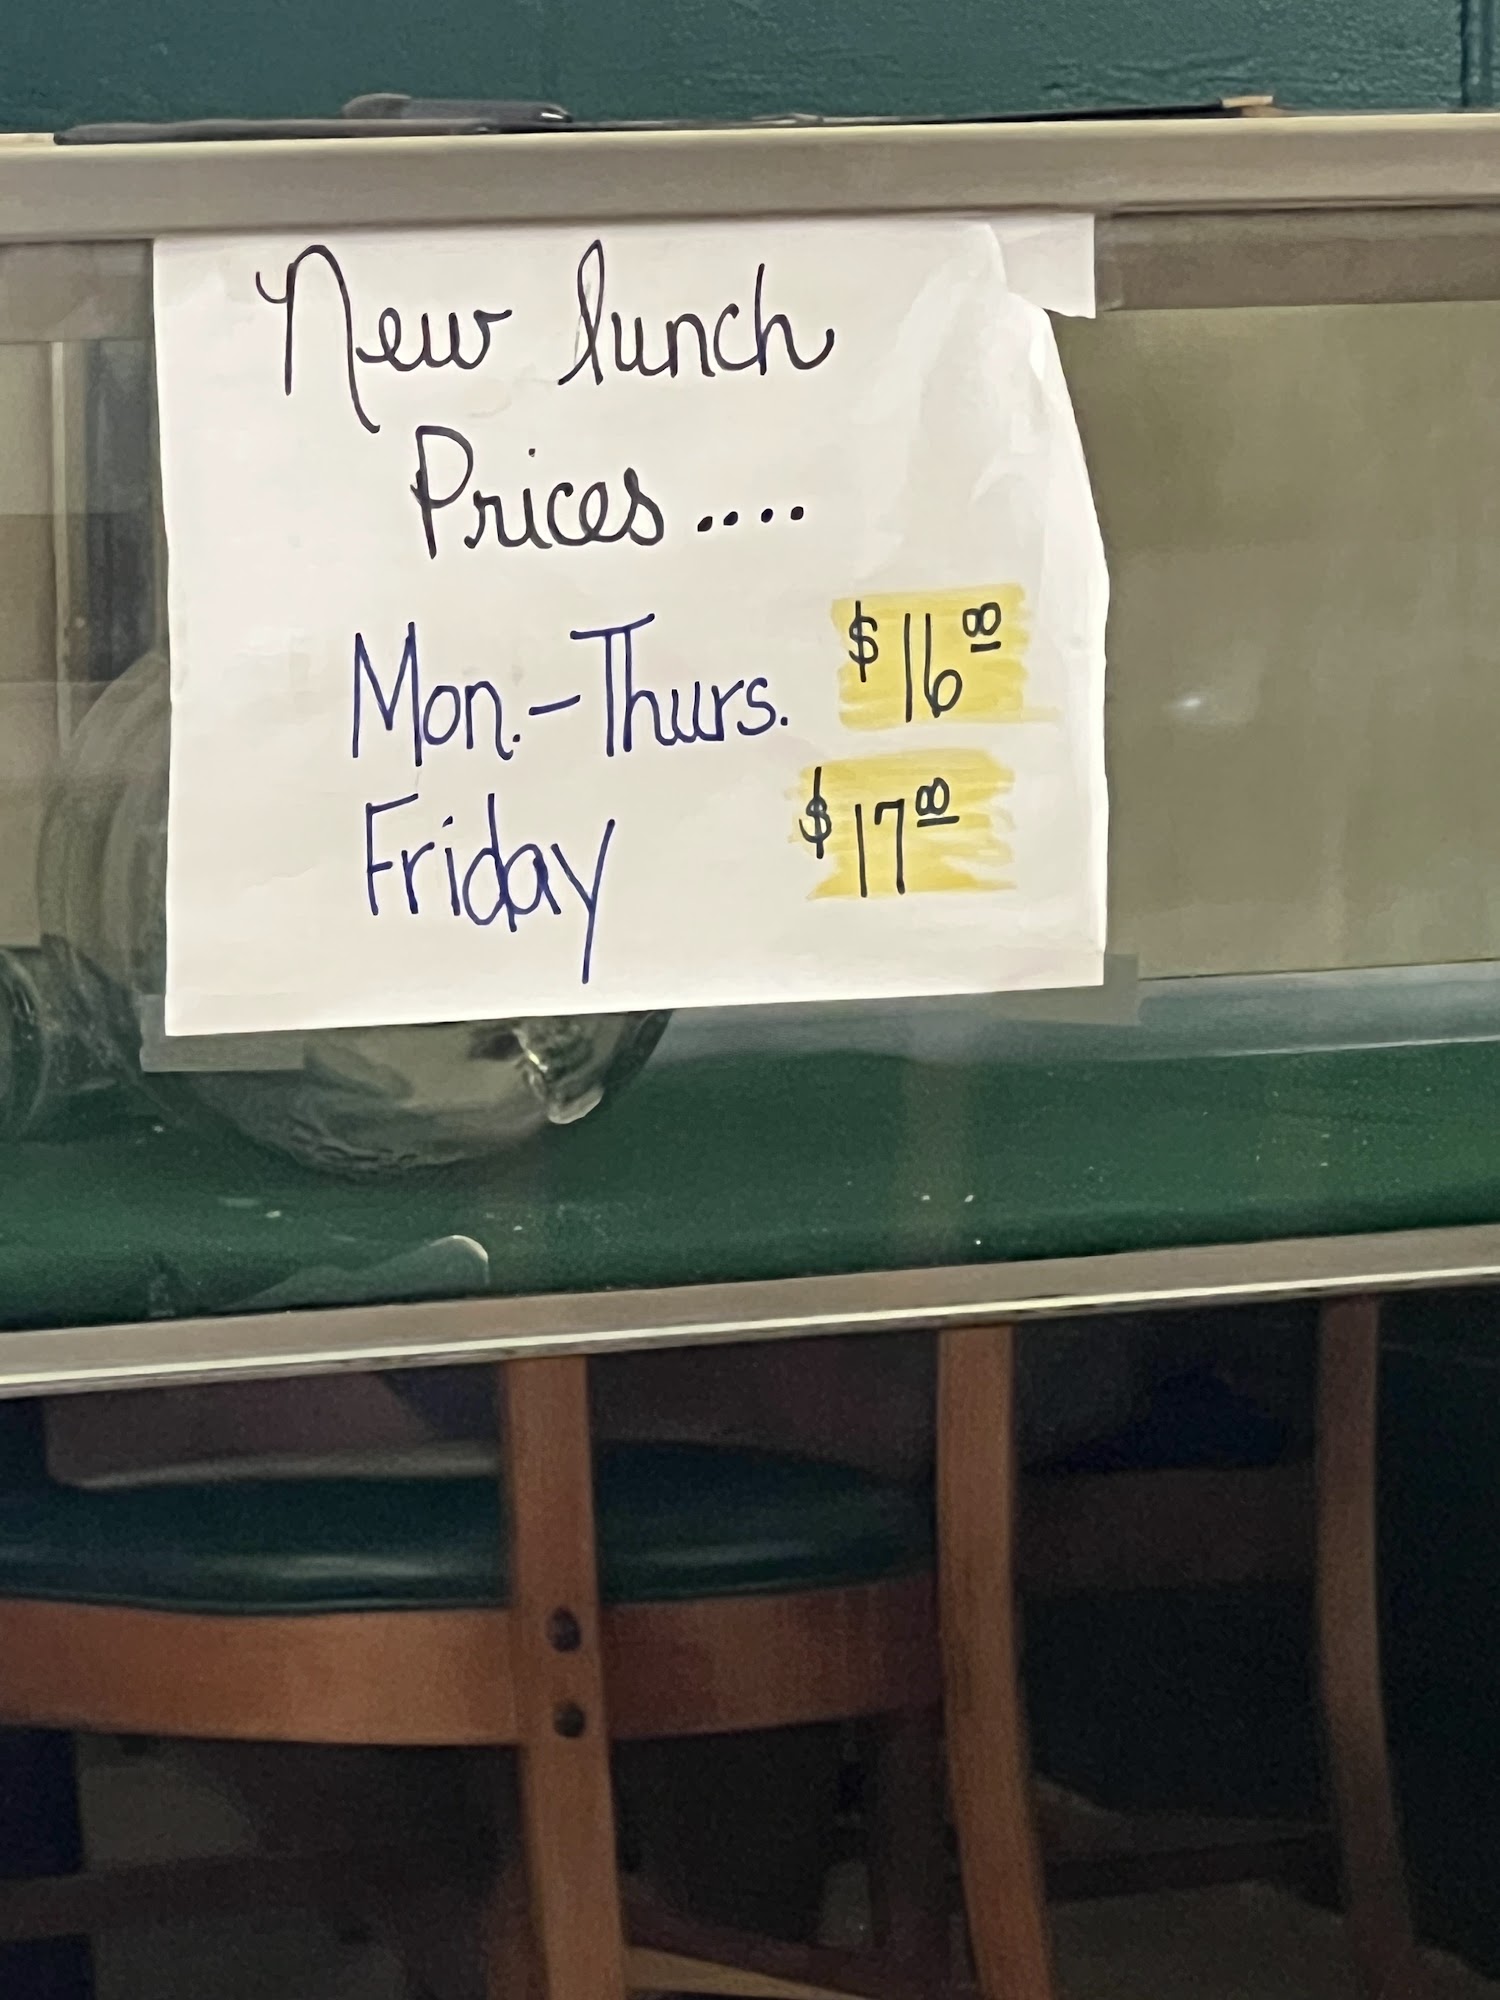 New lunch
Prices....
Mon.-Thurs. $16.00
Friday $17.00